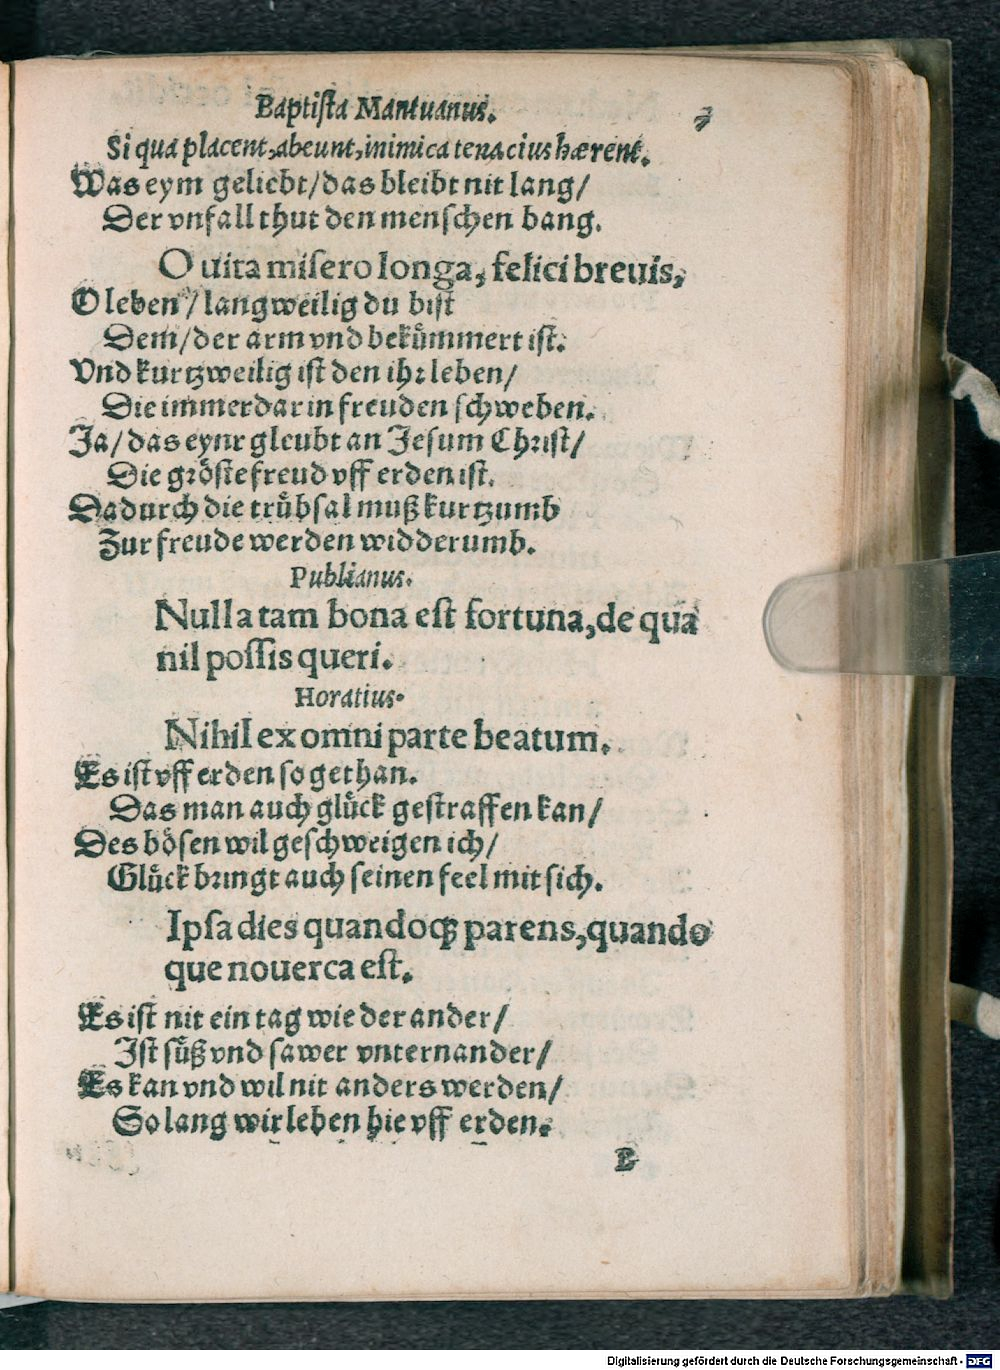 Baptista Mantuanus. 3
Si qua placent, abeunt, inimica tenacius hærent.
Was eym geliebt/ das bleibt nit lang/
Der vnfall thut den menschen bang.
O uita misero longa, felici breuis,
O leben/ langweilig du bist
Dem/ der arm vnd bekümmert ist.
Vnd kurtzweilig ist den ihr leben/
Die immerdar in freuden schweben.
Ja/ das eynr gleubt an Jesum Christ/
Die gröste freud vff erden ist.
Dadurch die trübsal muß kurtzumb
Zur freude werden widderumb.
Publianus.
Nulla tam bona est fortuna, de qua
nil possis queri.
Horatius.
Nihil ex omni parte beatum.
Es ist vff erden so gethan.
Das man auch glück gestraffen kan/
Des bösen wil geschweigen ich/
Glück bringt auch seinen feel mit sich.
Ipsa dies quandoqꝫ parens, quando
que nouerca est.
Es ist nit ein tag wie der ander/
Ist süß vnd sawer vnternander/
Es kan vnd wil nit anders werden/
So lang wir leben hie vff erden.
B
Digitalisierung gefördert durch die Deutsche Forschungsgemeinschaft - DFG